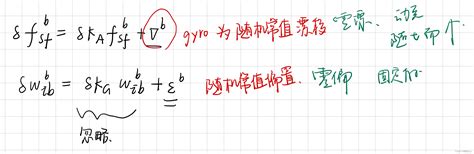 δf_{sf}^b = δK_A f_{sf}^b + ∇^b gyro 为随机常值漂移 零漂、
δw_{ib}^b = δK_G w_{ib}^b + ε^b 随机常值偏置. 零偏
忽略.